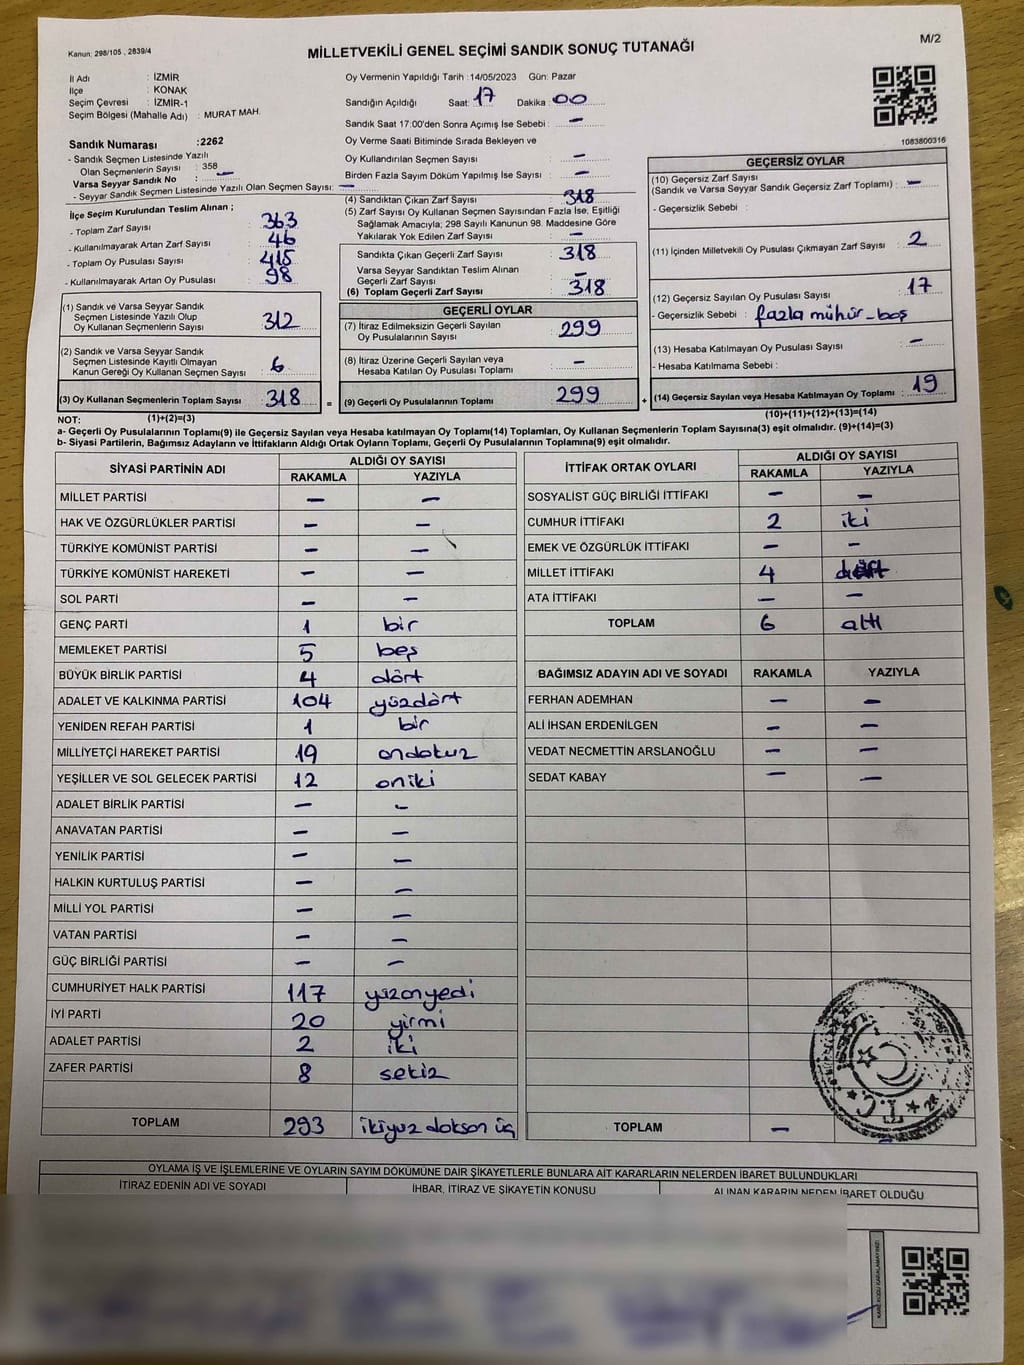 Kanun: 298/105 , 2839/4
MİLLETVEKİLİ GENEL SEÇİMİ SANDIK SONUÇ TUTANAĞI
M/2
İl Adı : İZMİR
İlçe : KONAK
Seçim Çevresi : İZMİR-1
Seçim Bölgesi (Mahalle Adı) : MURAT MAH.
Sandık Numarası :2262
- Sandık Seçmen Listesinde Yazılı
Olan Seçmenlerin Sayısı : 358
Varsa Seyyar Sandık No : –
- Seyyar Sandık Seçmen Listesinde Yazılı Olan Seçmen Sayısı: –
İlçe Seçim Kurulundan Teslim Alınan ;
- Toplam Zarf Sayısı 363
- Kullanılmayarak Artan Zarf Sayısı 46
- Toplam Oy Pusulası Sayısı 415
- Kullanılmayarak Artan Oy Pusulası 98
(1) Sandık ve Varsa Seyyar Sandık
Seçmen Listesinde Yazılı Olup
Oy Kullanan Seçmenlerin Sayısı 312
(2) Sandık ve Varsa Seyyar Sandık
Seçmen Listesinde Kayıtlı Olmayan
Kanun Gereği Oy Kullanan Seçmen Sayısı 6
(3) Oy Kullanan Seçmenlerin Toplam Sayısı 318
Oy Vermenin Yapıldığı Tarih :14/05/2023 Gün: Pazar
Sandığın Açıldığı Saat: 17 Dakika : 00
Sandık Saat 17:00'den Sonra Açımış İse Sebebi : –
Oy Verme Saati Bitiminde Sırada Bekleyen ve
Oy Kullandırılan Seçmen Sayısı –
Birden Fazla Sayım Döküm Yapılmış İse Sayısı : –
(4) Sandıktan Çıkan Zarf Sayısı 318
(5) Zarf Sayısı Oy Kullanan Seçmen Sayısından Fazla İse, Eşitliği
Sağlamak Amacıyla; 298 Sayılı Kanunun 98. Maddesine Göre
Yakılarak Yok Edilen Zarf Sayısı –
Sandıkta Çıkan Geçerli Zarf Sayısı 318
Varsa Seyyar Sandıktan Teslim Alınan
Geçerli Zarf Sayısı –
(6) Toplam Geçerli Zarf Sayısı 318
GEÇERLİ OYLAR
(7) İtiraz Edilmeksizin Geçerli Sayılan
Oy Pusulalarının Sayısı 299
(8) İtiraz Üzerine Geçerli Sayılan veya
Hesaba Katılan Oy Pusulası Toplamı –
= (9) Geçerli Oy Pusulalarının Toplamı 299 +
1083800316
GEÇERSİZ OYLAR
(10) Geçersiz Zarf Sayısı
(Sandık ve Varsa Seyyar Sandık Geçersiz Zarf Toplamı) : –
- Geçersizlik Sebebi :
(11) İçinden Milletvekili Oy Pusulası Çıkmayan Zarf Sayısı 2
(12) Geçersiz Sayılan Oy Pusulası Sayısı 17
- Geçersizlik Sebebi : fazla mühür-boş
(13) Hesaba Katılmayan Oy Pusulası Sayısı –
- Hesaba Katılmama Sebebi :
(14) Geçersiz Sayılan veya Hesaba Katılmayan Oy Toplamı 19
NOT: (1)+(2)=(3) (10)+(11)+(12)+(13)=(14)
a- Geçerli Oy Pusulalarının Toplamı(9) ile Geçersiz Sayılan veya Hesaba katılmayan Oy Toplamı(14) Toplamları, Oy Kullanan Seçmenlerin Toplam Sayısına(3) eşit olmalıdır. (9)+(14)=(3)
b- Siyasi Partilerin, Bağımsız Adayların ve İttifakların Aldığı Ortak Oyların Toplamı, Geçerli Oy Pusulalarının Toplamına(9) eşit olmalıdır.
SİYASİ PARTİNİN ADI ALDIĞI OY SAYISI
RAKAMLA YAZIYLA
MİLLET PARTİSİ – –
HAK VE ÖZGÜRLÜKLER PARTİSİ – –
TÜRKİYE KOMÜNİST PARTİSİ – –
TÜRKİYE KOMÜNİST HAREKETİ – –
SOL PARTİ – –
GENÇ PARTİ 1 bir
MEMLEKET PARTİSİ 5 beş
BÜYÜK BİRLİK PARTİSİ 4 dört
ADALET VE KALKINMA PARTİSİ 104 yüzdört
YENİDEN REFAH PARTİSİ 1 bir
MİLLİYETÇİ HAREKET PARTİSİ 19 ondokuz
YEŞİLLER VE SOL GELECEK PARTİSİ 12 oniki
ADALET BİRLİK PARTİSİ – –
ANAVATAN PARTİSİ – –
YENİLİK PARTİSİ – –
HALKIN KURTULUŞ PARTİSİ – –
MİLLİ YOL PARTİSİ – –
VATAN PARTİSİ – –
GÜÇ BİRLİĞİ PARTİSİ – –
CUMHURİYET HALK PARTİSİ 117 yüzonyedi
İYİ PARTİ 20 yirmi
ADALET PARTİSİ 2 iki
ZAFER PARTİSİ 8 sekiz
TOPLAM 293 ikiyüz doksan üç
İTTİFAK ORTAK OYLARI ALDIĞI OY SAYISI
RAKAMLA YAZIYLA
SOSYALİST GÜÇ BİRLİĞİ İTTİFAKI – –
CUMHUR İTTİFAKI 2 iki
EMEK VE ÖZGÜRLÜK İTTİFAKI – –
MİLLET İTTİFAKI 4 dört
ATA İTTİFAKI – –
TOPLAM 6 altı
BAĞIMSIZ ADAYIN ADI VE SOYADI RAKAMLA YAZIYLA
FERHAN ADEMHAN – –
ALİ İHSAN ERDENİLGEN – –
VEDAT NECMETTİN ARSLANOĞLU – –
SEDAT KABAY – –
T.C.
TOPLAM – –
OYLAMA İŞ VE İŞLEMLERİNE VE OYLARIN SAYIM DÖKÜMÜNE DAİR ŞİKAYETLERLE BUNLARA AİT KARARLARIN NELERDEN İBARET BULUNDUKLARI
İTİRAZ EDENİN ADI VE SOYADI İHBAR, İTİRAZ VE ŞİKAYETİN KONUSU ALINAN KARARIN NEDEN İBARET OLDUĞU
KARE KODU KARALAMAYINIZ!